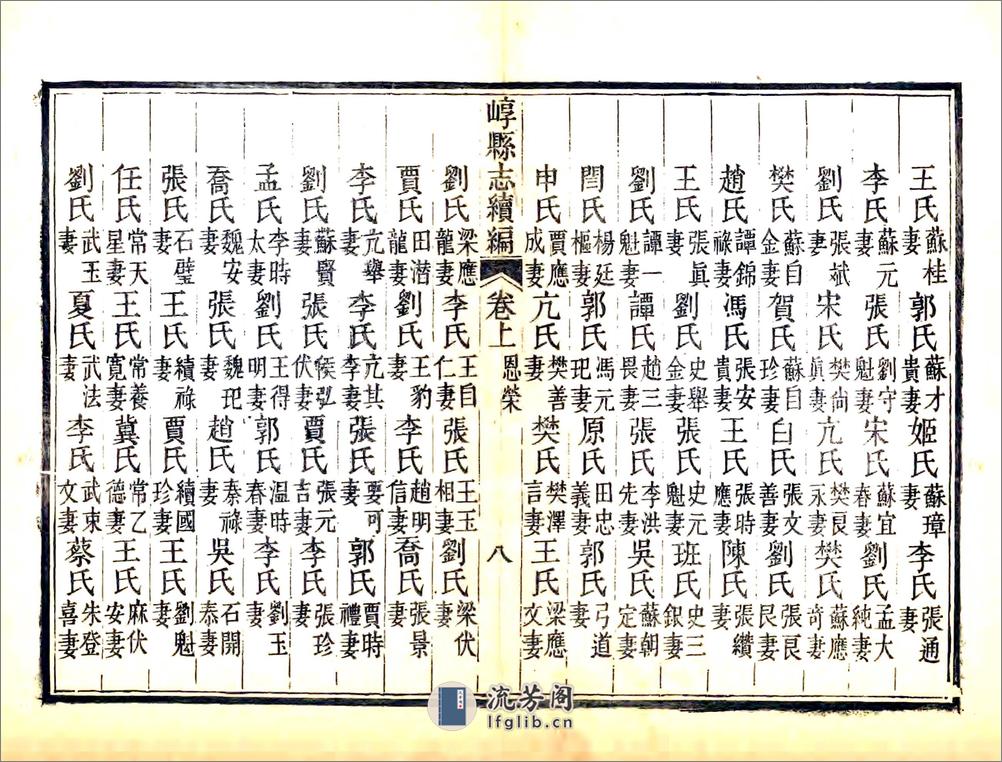 王氏蘇桂妻郭氏蘇才貴妻姬氏蘇璋妻李氏張通妻
李氏蘇元妻張氏劉守魁妻宋氏蘇宜春妻劉氏孟大純妻
劉氏張斌妻宋氏樊尙眞妻亢氏樊良永妻樊氏蘇應奇妻
樊氏蘇自金妻賀氏蘇自珍妻白氏張文善妻劉氏張良艮妻
趙氏譚錦祿妻馮氏張安貴妻王氏張時應妻陳氏張纘妻
王氏張眞妻劉氏史舉金妻張氏史元魁妻班氏史三銀妻
劉氏譚一魁妻譚氏趙三畏妻張氏李洪先妻吳氏蘇朝定妻
閆氏楊廷樞妻郭氏馮元玘妻原氏田忠義妻郭氏弓道妻
申氏賈應成妻亢氏樊善妻樊氏樊澤言妻王氏梁應文妻
崞縣志續編 卷上 恩榮 八
劉氏梁應龍妻李氏王自仁妻張氏王玉相妻劉氏梁伏妻
賈氏田潛龍妻劉氏王豹妻李氏趙明信妻喬氏張景妻
李氏亢舉妻李氏亢其李妻張氏要可妻郭氏賈時禮妻
劉氏蘇賢妻張氏侯弘伏妻賈氏張元吉妻李氏張珍妻
孟氏李時太妻劉氏王得明妻郭氏溫時春妻李氏劉玉妻
喬氏魏安妻張氏魏玘妻趙氏秦祿妻吳氏石開泰妻
張氏石璧妻王氏續祿妻賈氏續國珍妻王氏劉魁妻
任氏常天星妻王氏常養寬妻冀氏常乙德妻王氏麻伏安妻
劉氏武玉妻夏氏武法妻李氏武東文妻蔡氏朱登喜妻
流芳阁
lfglib.cn